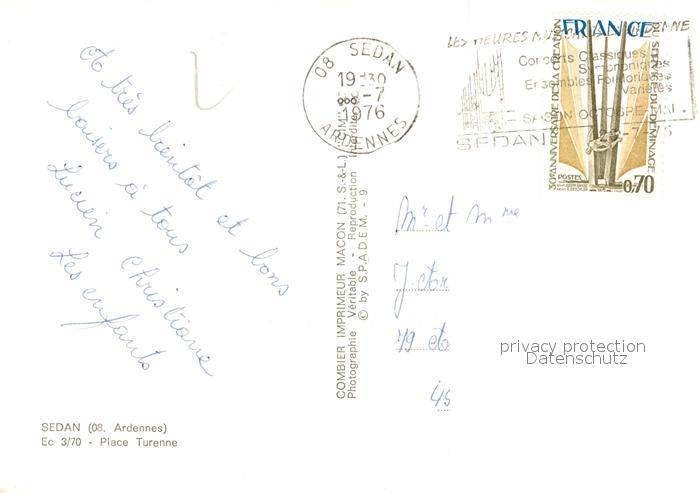 A très bientôt et bons
baisers à tous
Lucien Christiane
Les enfants
SEDAN (08. Ardennes)
Ec 3/70 - Place Turenne
COMBIER IMPRIMEUR MACON (71. S.-&L.)
Photographie Véritable - Reproduction Interdite
© by S.P.A.D.E.M. - 9
08 SEDAN
19H30
-7
1976
ARDENNES
LES HEURES
Concerts Classiques
Symphoniques
Ensembles Folkloriques
Variétés
SAISON OCTOBRE-MAI
SEDAN
FRANCE
30e ANNIVERSAIRE DE LA CRÉATION
DU SERVICE DU DÉMINAGE
POSTES
0,70
Mr et Mme
79
45
privacy protection
Datenschutz